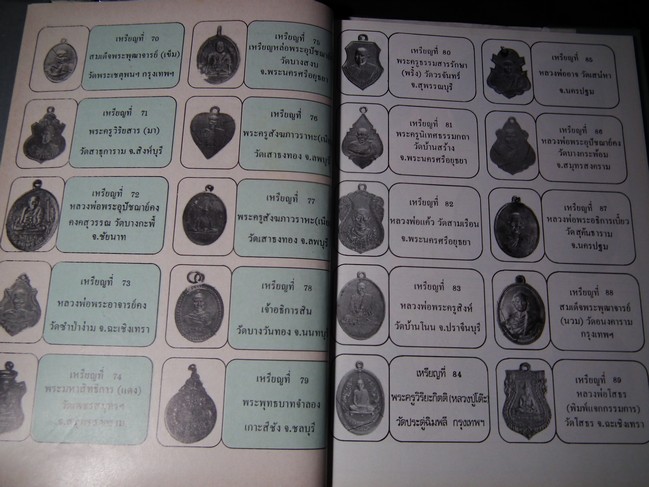 เหรียญที่ 70
สมเด็จพระพุฒาจารย์ (เข้ม)
วัดพระเชตุพนฯ กรุงเทพฯ
เหรียญที่ 71
พระครูวิริยสาร (มา)
วัดสาธุการาม จ.สิงห์บุรี
เหรียญที่ 72
หลวงพ่อพระอุปัชฌาย์คง
คงคสุวรรณ วัดบางกะพี้
จ.ชัยนาท
เหรียญที่ 73
หลวงพ่อพระอาจารย์คง
วัดซำป่าง่าม จ.ฉะเชิงเทรา
เหรียญที่ 74
พระมหาสิทธิการ (แดง)
เหรียญที่ 75
เหรียญหล่อพระอุปัชฌาย์
วัดบางสงบ
จ.พระนครศรีอยุธยา
เหรียญที่ 76
พระครูสังฆภาววาหะ(เนียม
วัดเสาธงทอง จ.ลพบุรี
เหรียญที่ 77
พระครูสังฆภาววาหะ(เนียม
วัดเสาธงทอง จ.ลพบุรี
เหรียญที่ 78
เจ้าอธิการสิน
วัดบางวันทอง จ.นนทบุรี
เหรียญที่ 79
พระพุทธบาทจำลอง
เกาะสีชัง จ.ชลบุรี
เหรียญที่ 80
พระครูธรรมสารรักษา
(พริ้ง) วัดวรจันทร์
จ.สุพรรณบุรี
เหรียญที่ 81
พระครูนิเทศธรรมกถา
วัดบ้านสร้าง
จ.พระนครศรีอยุธยา
เหรียญที่ 82
หลวงพ่อแก้ว วัดสามเรือน
จ.พระนครศรีอยุธยา
เหรียญที่ 83
หลวงพ่อพระครูสิงห์
วัดบ้านโนน จ.ปราจีนบุรี
เหรียญที่ 84
พระครูวิริยะกิตติ (หลวงปู่โต๊ะ)
วัดประดู่ฉิมพลี กรุงเทพฯ
เหรียญที่ 85
หลวงพ่ออาจ วัดเสน่หา
จ.นครปฐม
เหรียญที่ 86
หลวงพ่อพระอุปัชฌาย์คง
วัดบางกะพ้อม
จ.สมุทรสงคราม
เหรียญที่ 87
หลวงพ่อพระอธิการเบี้ยว
จ.นครปฐม
เหรียญที่ 88
สมเด็จพระพุฒาจารย์
(นวม) วัดอนงคาราม
กรุงเทพฯ
เหรียญที่ 89
หลวงพ่อโสธร
(พิมพ์แจกกรรมการ)
วัดโสธร จ.ฉะเชิงเทรา